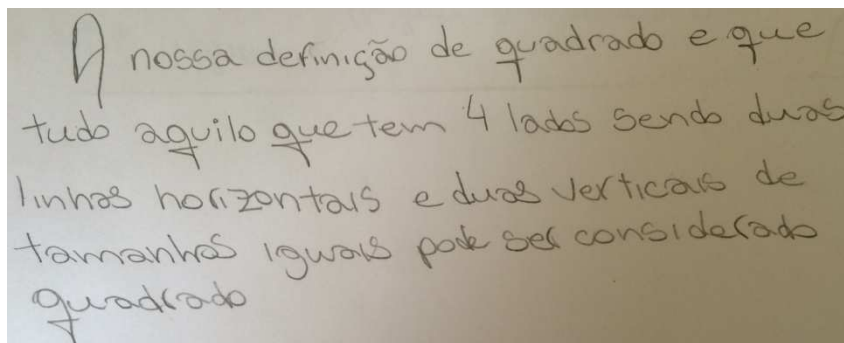 A nossa definição de quadrado e que
tudo aquilo que tem 4 lados sendo duas
linhas horizontais e duas verticais de
tamanhos iguais pode ser considerado
quadrado